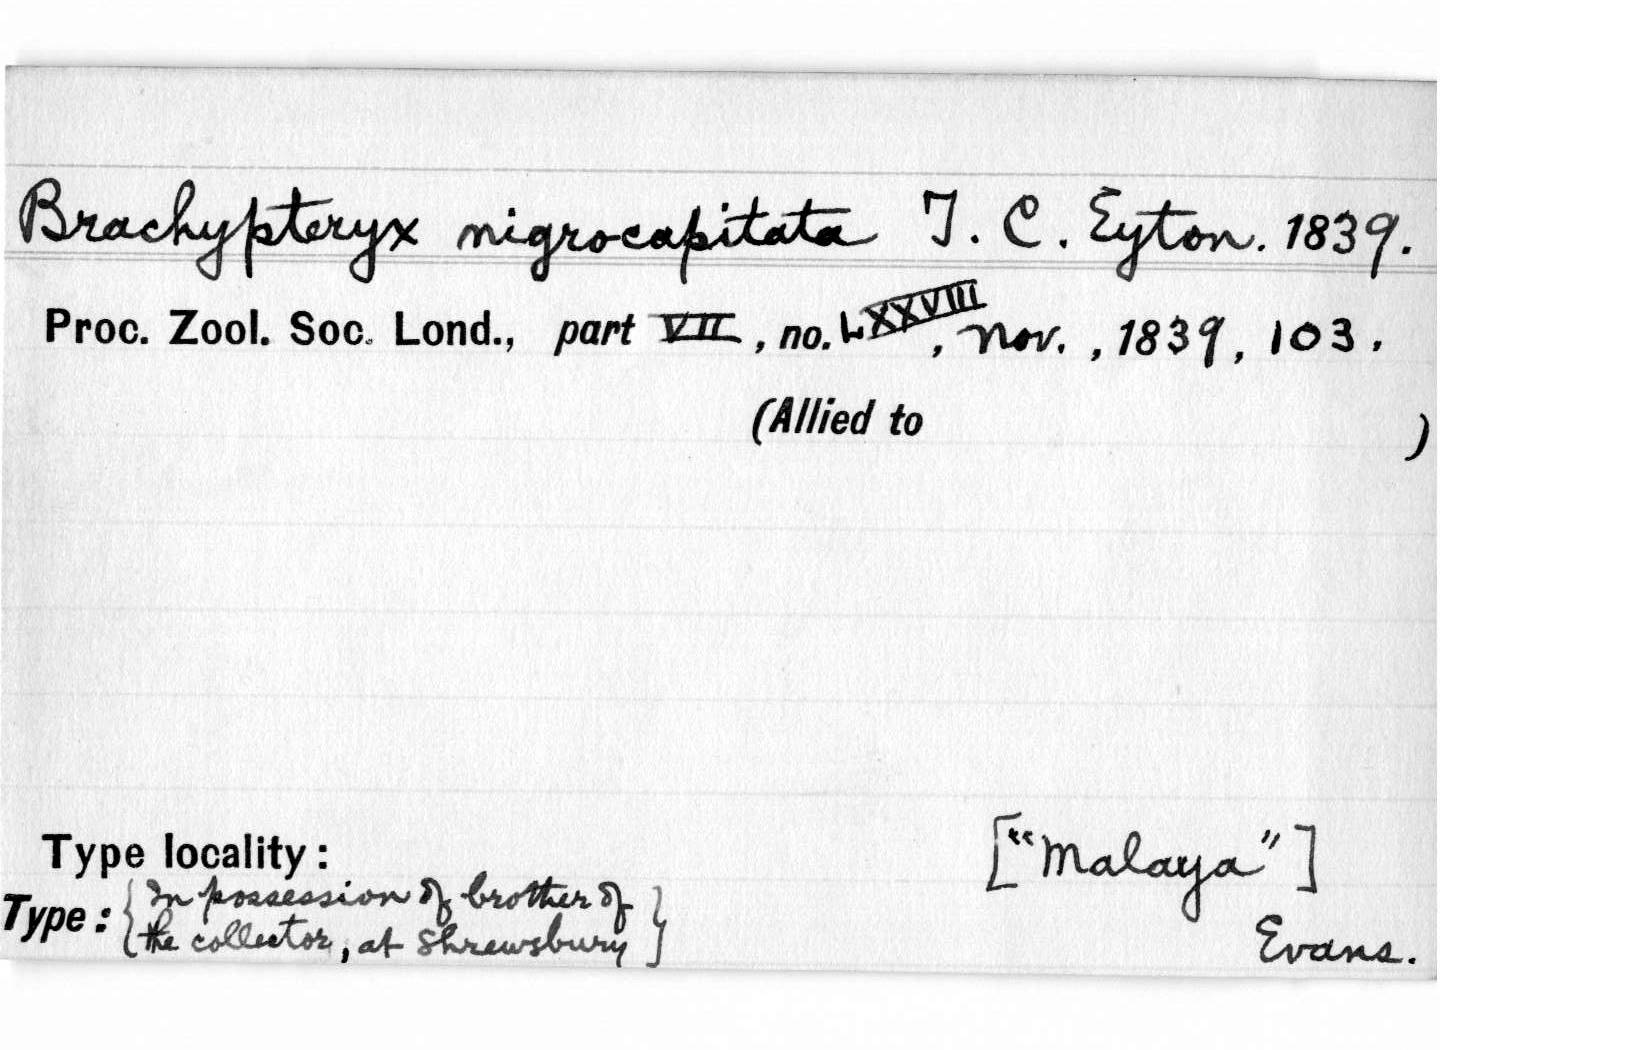 Brachypteryx nigrocapitata T. C. Eyton. 1839.
Proc. Zool. Soc. Lond., part VII, no. LXXXVIII, Nov., 1839, 103.
(Allied to )
Type locality: ["Malaya"]
Type: {In possession of brother of
the collector, at Shrewsbury}
Evans.